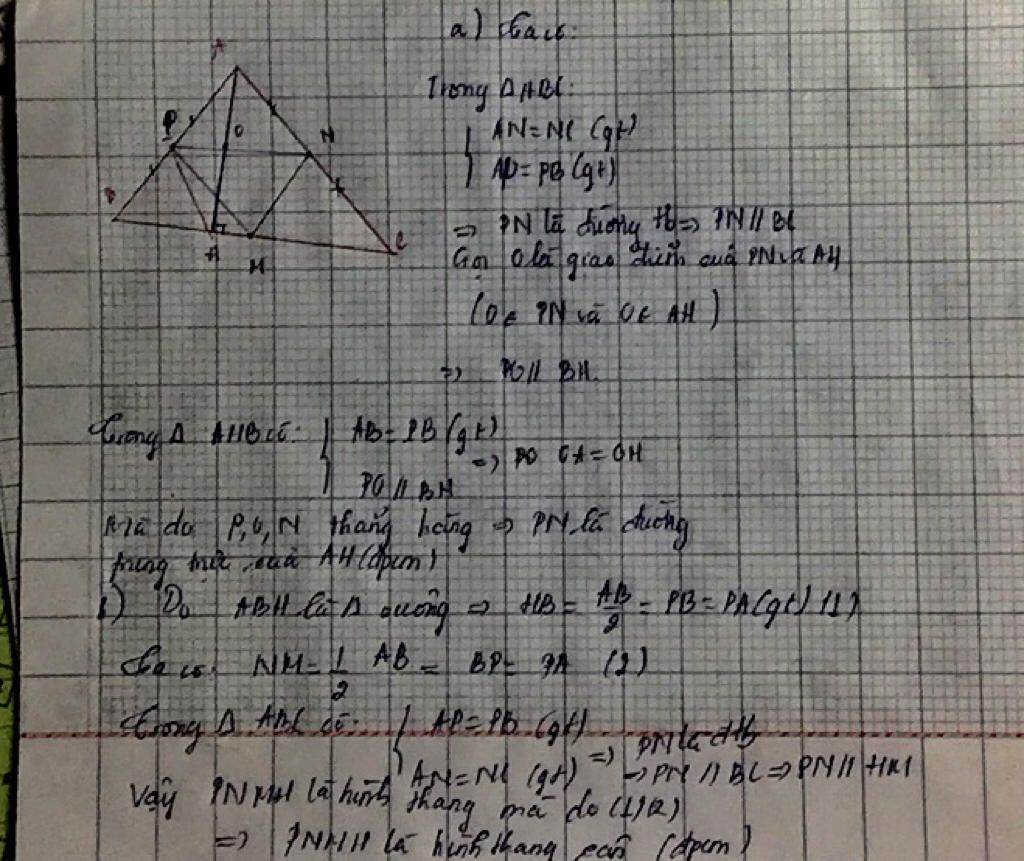 a) Ta có:
Trong ΔABC:
AN=NC (gt)
AP=PB (gt)
⇒ PN là đường tb ⇒ PN // BC
Gọi O là giao điểm của PN và AH
(O ∈ PN và O ∈ AH)
⇒ PO // BH.
Trong Δ AHB có: AB = PB (gt)
⇒ PO OA = OH
PO // BH
Mà do P, O, N thẳng hàng ⇒ PN là đường
trung trực của AH (đpcm)
b) Do ABH là Δ vuông ⇒ HB = AB/2 = PB = PA (gt) (1)
Ta có: NM = 1/2 AB = BP = PA (2)
Trong Δ ABC có: AP = PB (gt)
⇒ PN là đtb
AN = NC (gt) → PN // BC ⇒ PN // HM
Vậy PNMH là hình thang mà do (1) (2)
⇒ PNMH là hình thang cân (đpcm)
A
P
O
N
B
A
M
C